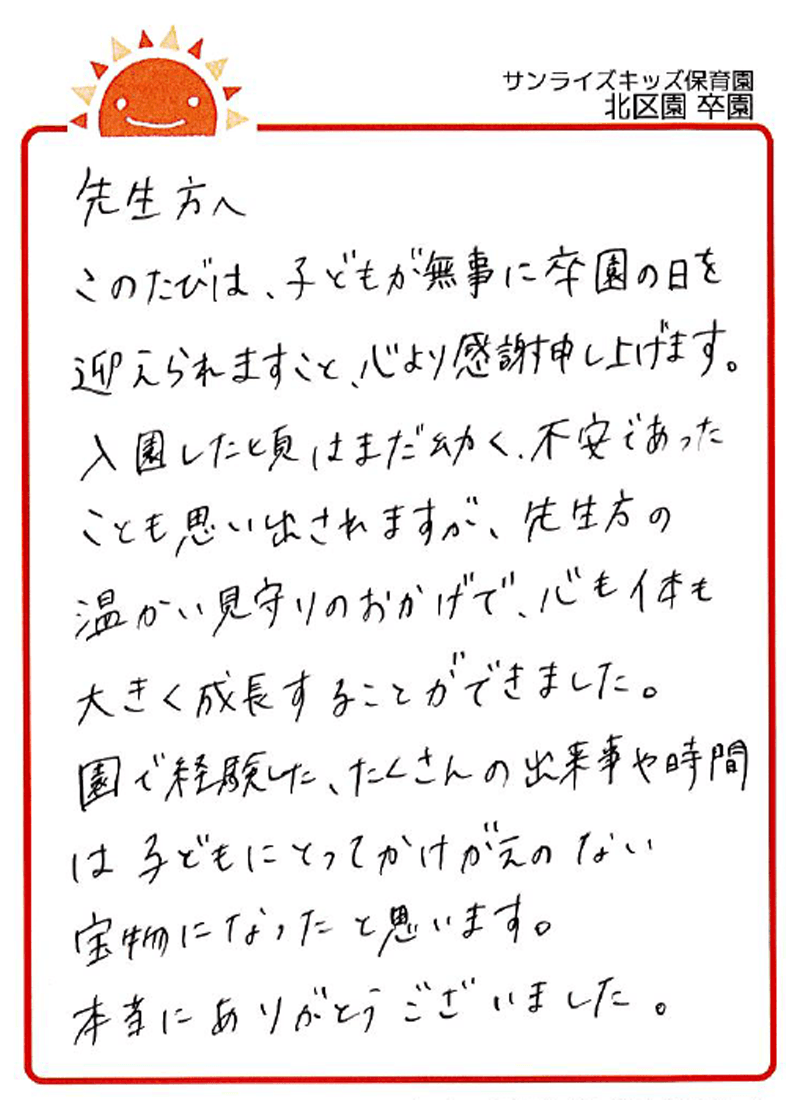 サンライズキッズ保育園
北区園 卒園
先生方へ
このたびは、子どもが無事に卒園の日を
迎えられますこと、心より感謝申し上げます。
入園した頃はまだ幼く、不安であった
ことも思い出されますが、先生方の
温かい見守りのおかげで、心も体も
大きく成長することができました。
園で経験した、たくさんの出来事や時間
は子どもにとってかけがえのない
宝物になったと思います。
本当にありがとうございました。